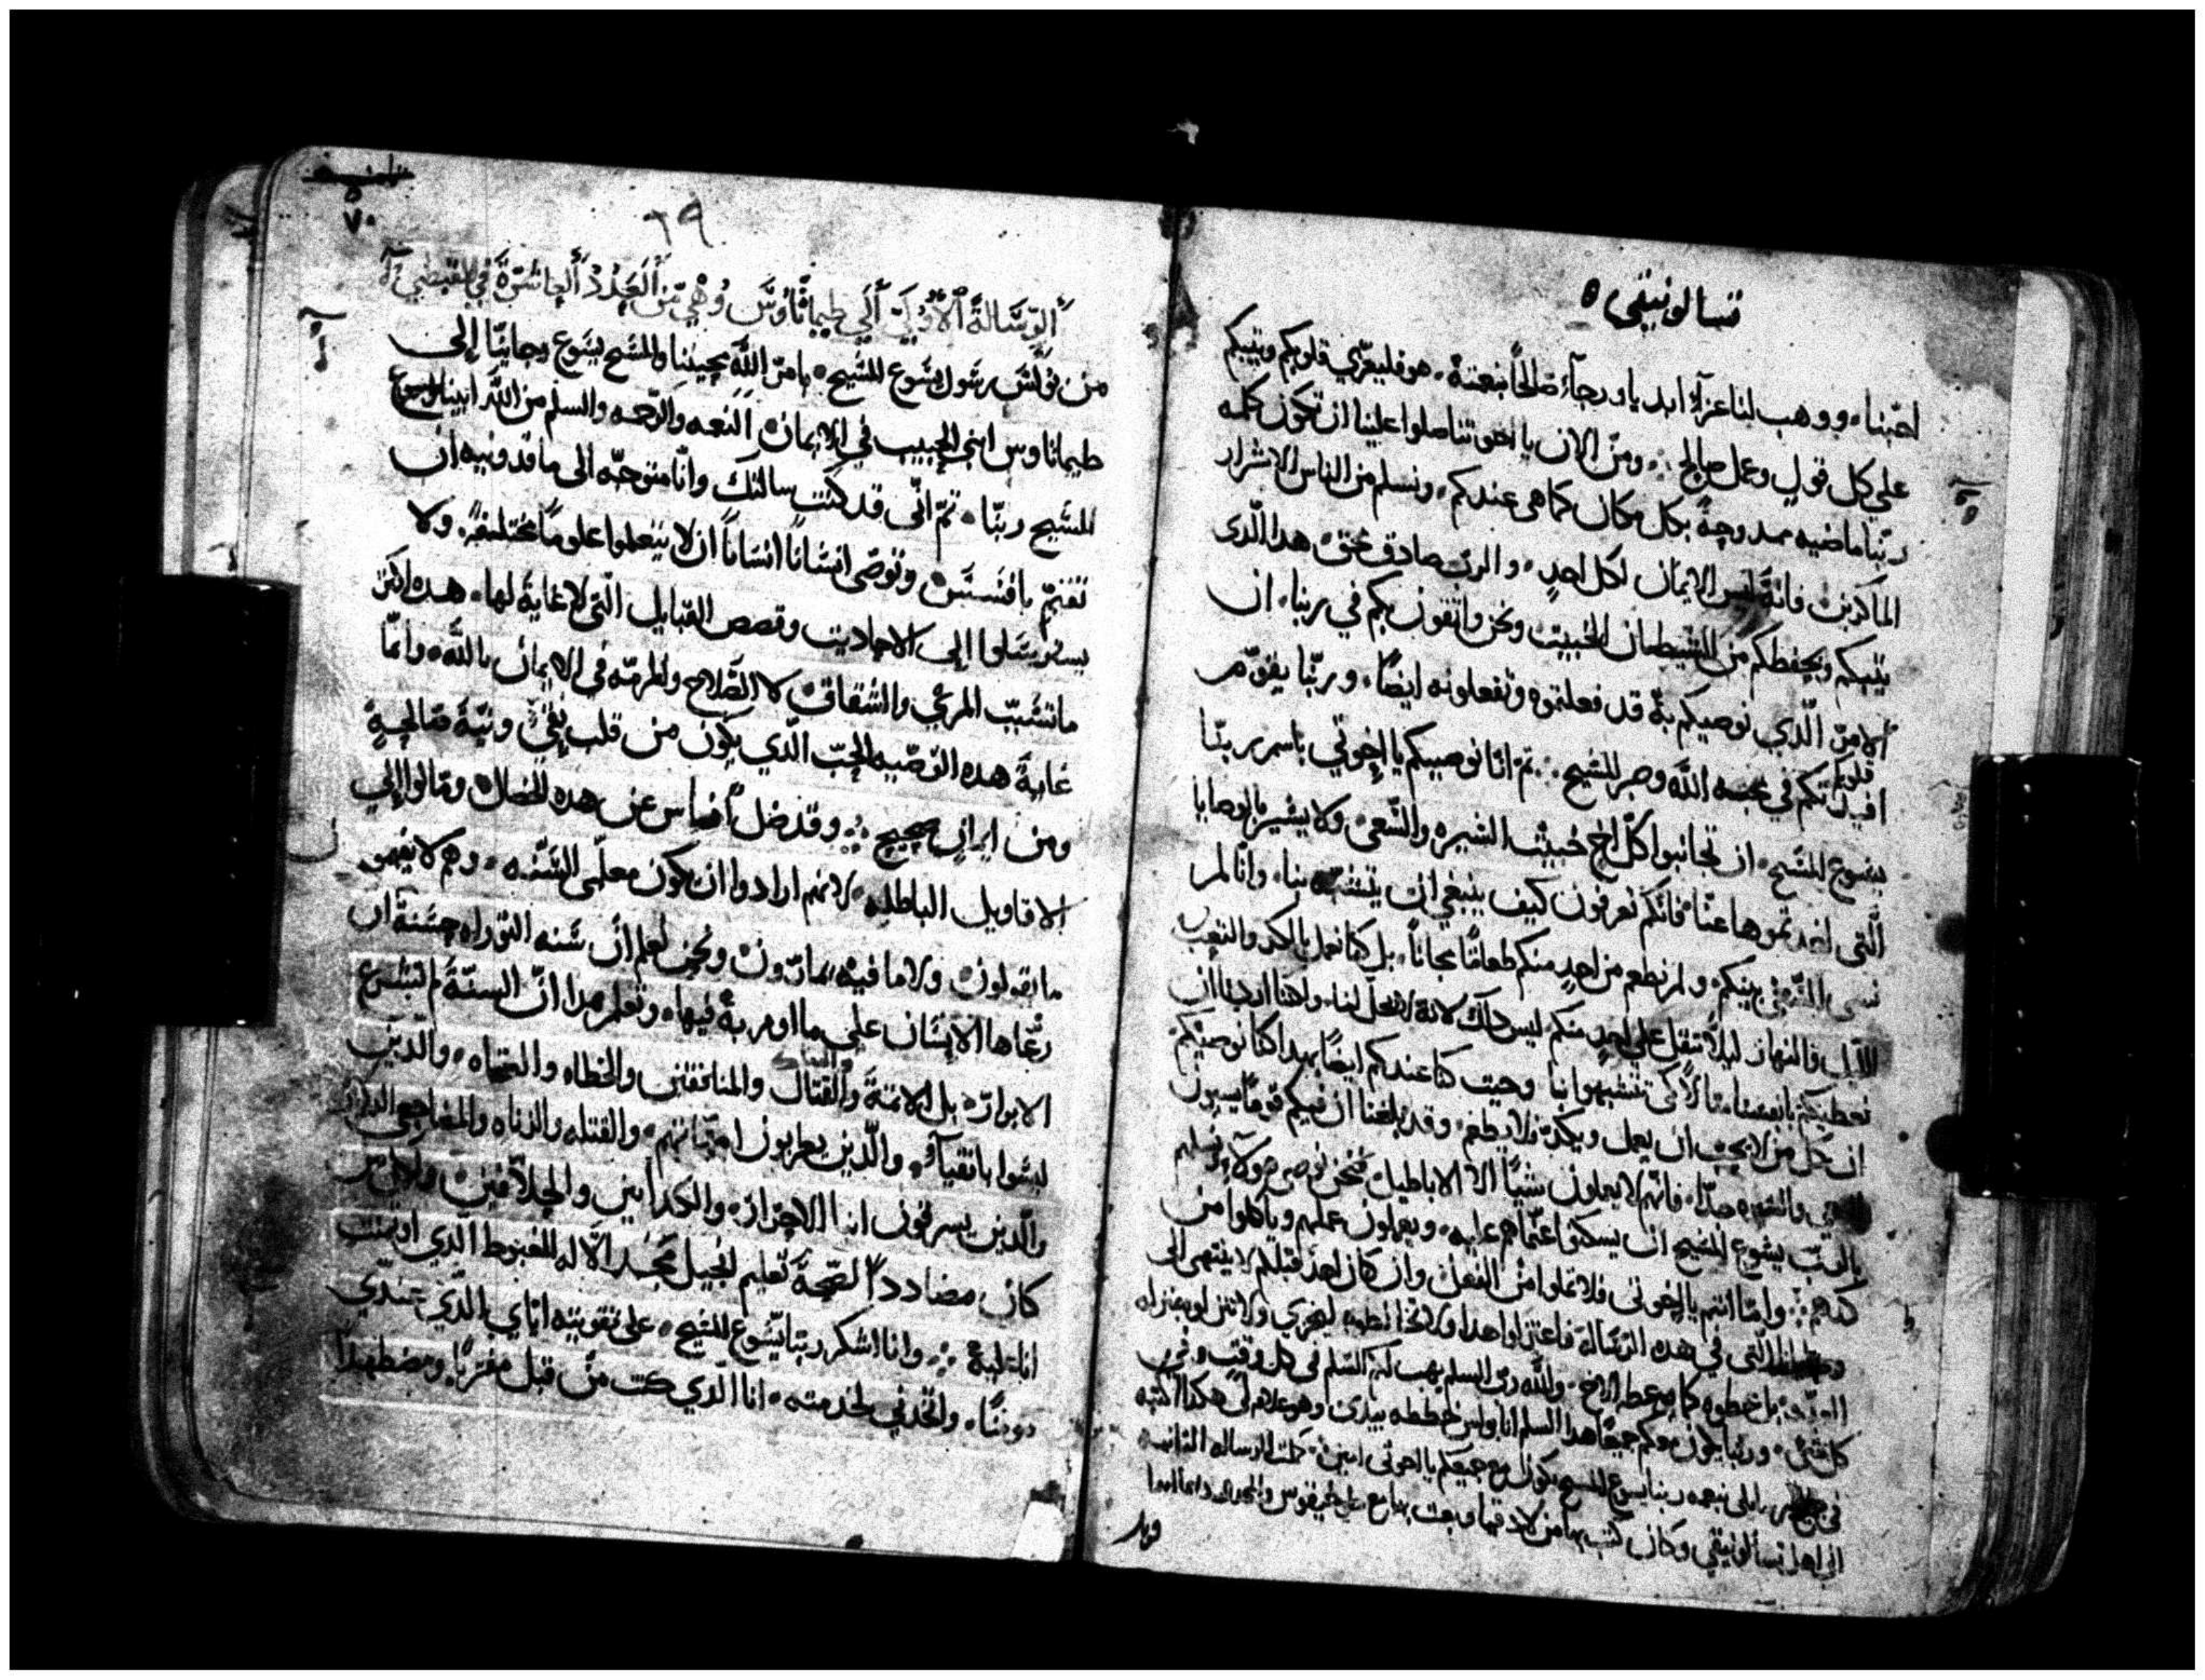 تسالونيقى ٥
احبنا، ووهب لنا عزآءً ابديا ورجآءً صالحًا بنعمته، هو فليعزي قلوبكم ويثبتكم
على كل قول وعمل صالح ومن الان يا اخوتنا صلوا علينا ان تكون كلمه
ربّنا ماضيه ممدوحةً بكل مكان كما هى عندكم، ونسلم من الناس الاشرار
الماكرين فانهُ ليس الايمان لكل احدٍ، والرب صادق محق هدا الّدى
يثبتكم ويحفظكم من الشيطان الخبيث ونحن واثقون بكم في ربنا، ان
الامرّ الّدي نوصيكم بهُ قد فعلتموه وتفعلونه ايضًا، وربّنا يقوّم
قلوبكم في محبه اللّه وصبر المسيح تم انا نوصيكم يا اخوتي باسم ربنّا
يسوع المسيح، ان تجانبوا كلّ اخ خبيث السيره والسّعى ولا يسير بالوصايا
الّتى اخدتموها عنّا فانّكم تعرفون كيف ينبغي ان يتشبّه بنا، وانّا لم
بينكم، ولم نطعم من احدٍ منكم طعامًا مجاناً، بل كنا نعمل بالكد والتعب
الليل والنهار ليلا نثقل على احدٍ منكم ليس دلك لانهُ لا يحلّ لنا، ولكننا اردنا ان
نعطيكم بانفسنا مثالاً كى تتشبهوا بنا وحيت كنا عندكم ايضًا بهدا كنا نوصيكم
ان كل من لا يحب ان يعمل ويكدّ فلا يطعم وقد بلغنا ان فيكم قومًا يسيرون
فانّهم لا يعملون شيًا الا الاباطيل فنحن نوصى هولآء ونسلهم
بالربّ يسوع المسيح ان يسكتوا عمّا هم عليه، ويعملون عملهم وياكلوا من
كدهم وامّا انتم يا اخوتى فلا تملوا من الفعل وان كان احد قبلكم لا ينتهى الى
الّتى في هده الرسالة فاعتزلوا هدا ولا تخالطوه ليخزي ولا تنزلوه بمنزله
العدو، بل عظوه كما يوعظ الاخ، واللّه ربّ السلم يهب لكم السّلم في كل وقتٍ وفى
كل شئ، وربنا يكون معكم جميعًا هدا السلم انا بولس خططته بيدى وهو علامتى هكدا اكتبه
في جميع رسايلى نعمه ربنا يسوع المسيح تكون مع جميعكم يا اخوتى امين كملت الرساله التانيه
الى اهل تسالونيقي وكان كتب بها من لادقيا وبعت بها مع طيخيقوس والمجد لله دايما ابدا
٦٩
٧٠
الرّسَالةُ الاُولَى الَى طيماتَاوُسَ وُهْيَ مِنَ العَدَدْ العاشرَةَ
من بولس رسول يسوع المسيح، بامر اللّه محيينا والمسيح يسوع رجايّنا إلى
طيماتاوس ابنى الحبيب في الايمان النعمه والرّحمه والسلم من اللّه ابينا ويسوع
المسيح ربنّا، تم انّى قد كنت سالتك وانّا متوجّه الى ماقدونيه ان
تقيم بافسس وتوصّى انسَانًا انسَاناً ان لا يتعلموا علومًا مختلفةً، ولا
يسترسلوا إلى الاحاديت وقصص القبايل الّتى لا غايةَ لها، هده اكثر
ما تسبّب المرى والشقاق لا الصّلاح والمرمّه في الايمان باللّه، وامّا
غايةُ هده الوصّيه الحبّ الّدي يكون من قلب نقيّ ونيّةٍ صالحةٍ
ومن ايمانٍ صحيح وقد ضل أناس عن هده الخصال ومالوا إلي
الاقاويل الباطله، لانهم ارادوا ان يكون معلمّى السّنّه، وهم لا يفهمون
ما يقولون ولا ما فيه يمارون ونحن نعلم ان سنه التوراه حسَنةٌ ان
رعَاها الانسَان على ما اومر بهُ فيها، وتعلم هدا انّ السنّةَ لم تشرع
الابرار، بل الاثمةَ والقتال والمنافقين والخطاه والعتاه، والدين
ليسُوا باتقيآءٍ، والّدين يضربون امهاتهم، والقتله والزناه والمضاجعى الدكور
والّدين يسرقون ابنا الاحرار، والكدابين والحلاّفين ولكل من
كان مضاددًا لصّحةَ تعليم انجيل مجد الالّه المغبوط الدي اوتمنت
انا عليه وانا اشكر ربنا يسّوع المسيح، على تقويته ايّاي بالدّي عندّي
مومنًا، واتخدنى لخدمته، انا الّدي كنت من قبل مفترًيا، ومضطهدًا